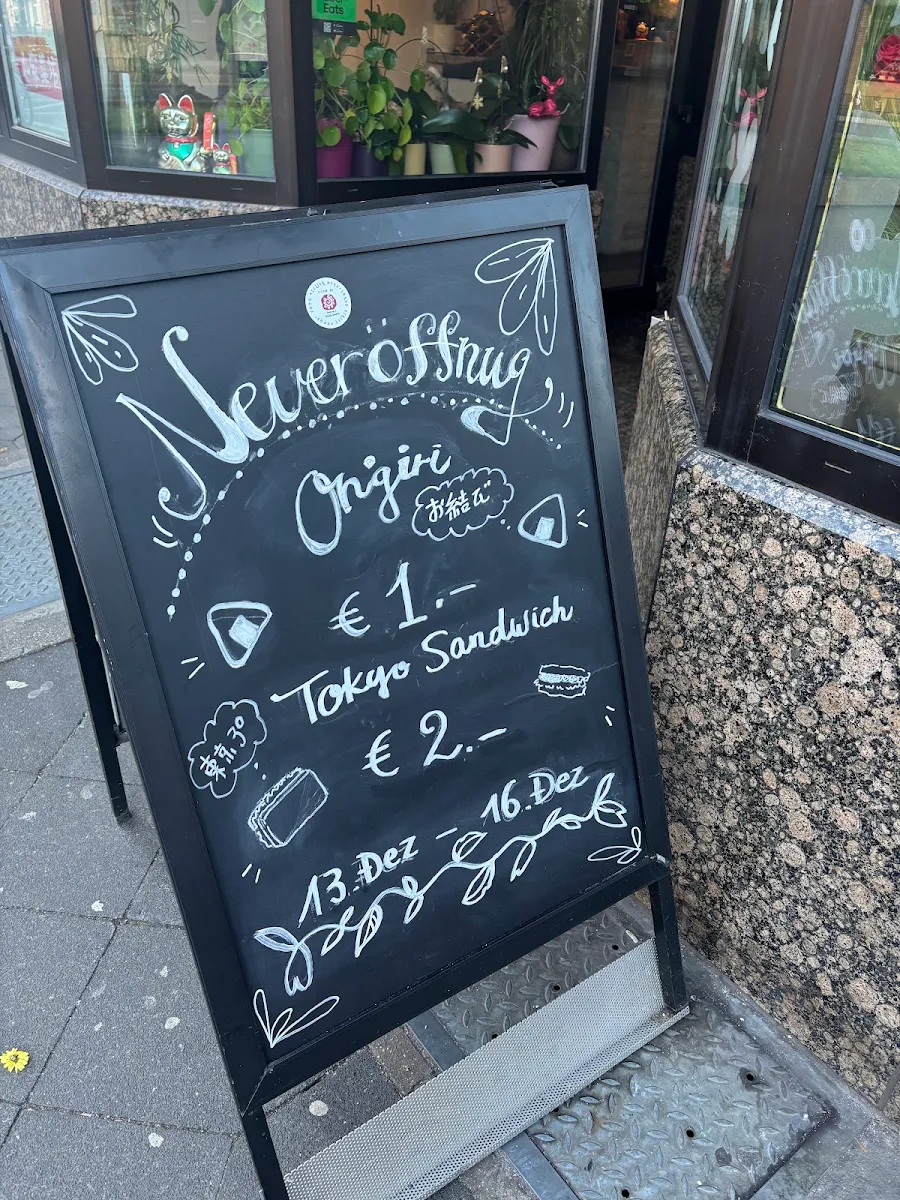 Eats
Neueröffnug
Onigiri
お結び
€ 1.-
Tokyo Sandwich
東京
€ 2.-
13.Dez - 16.Dez